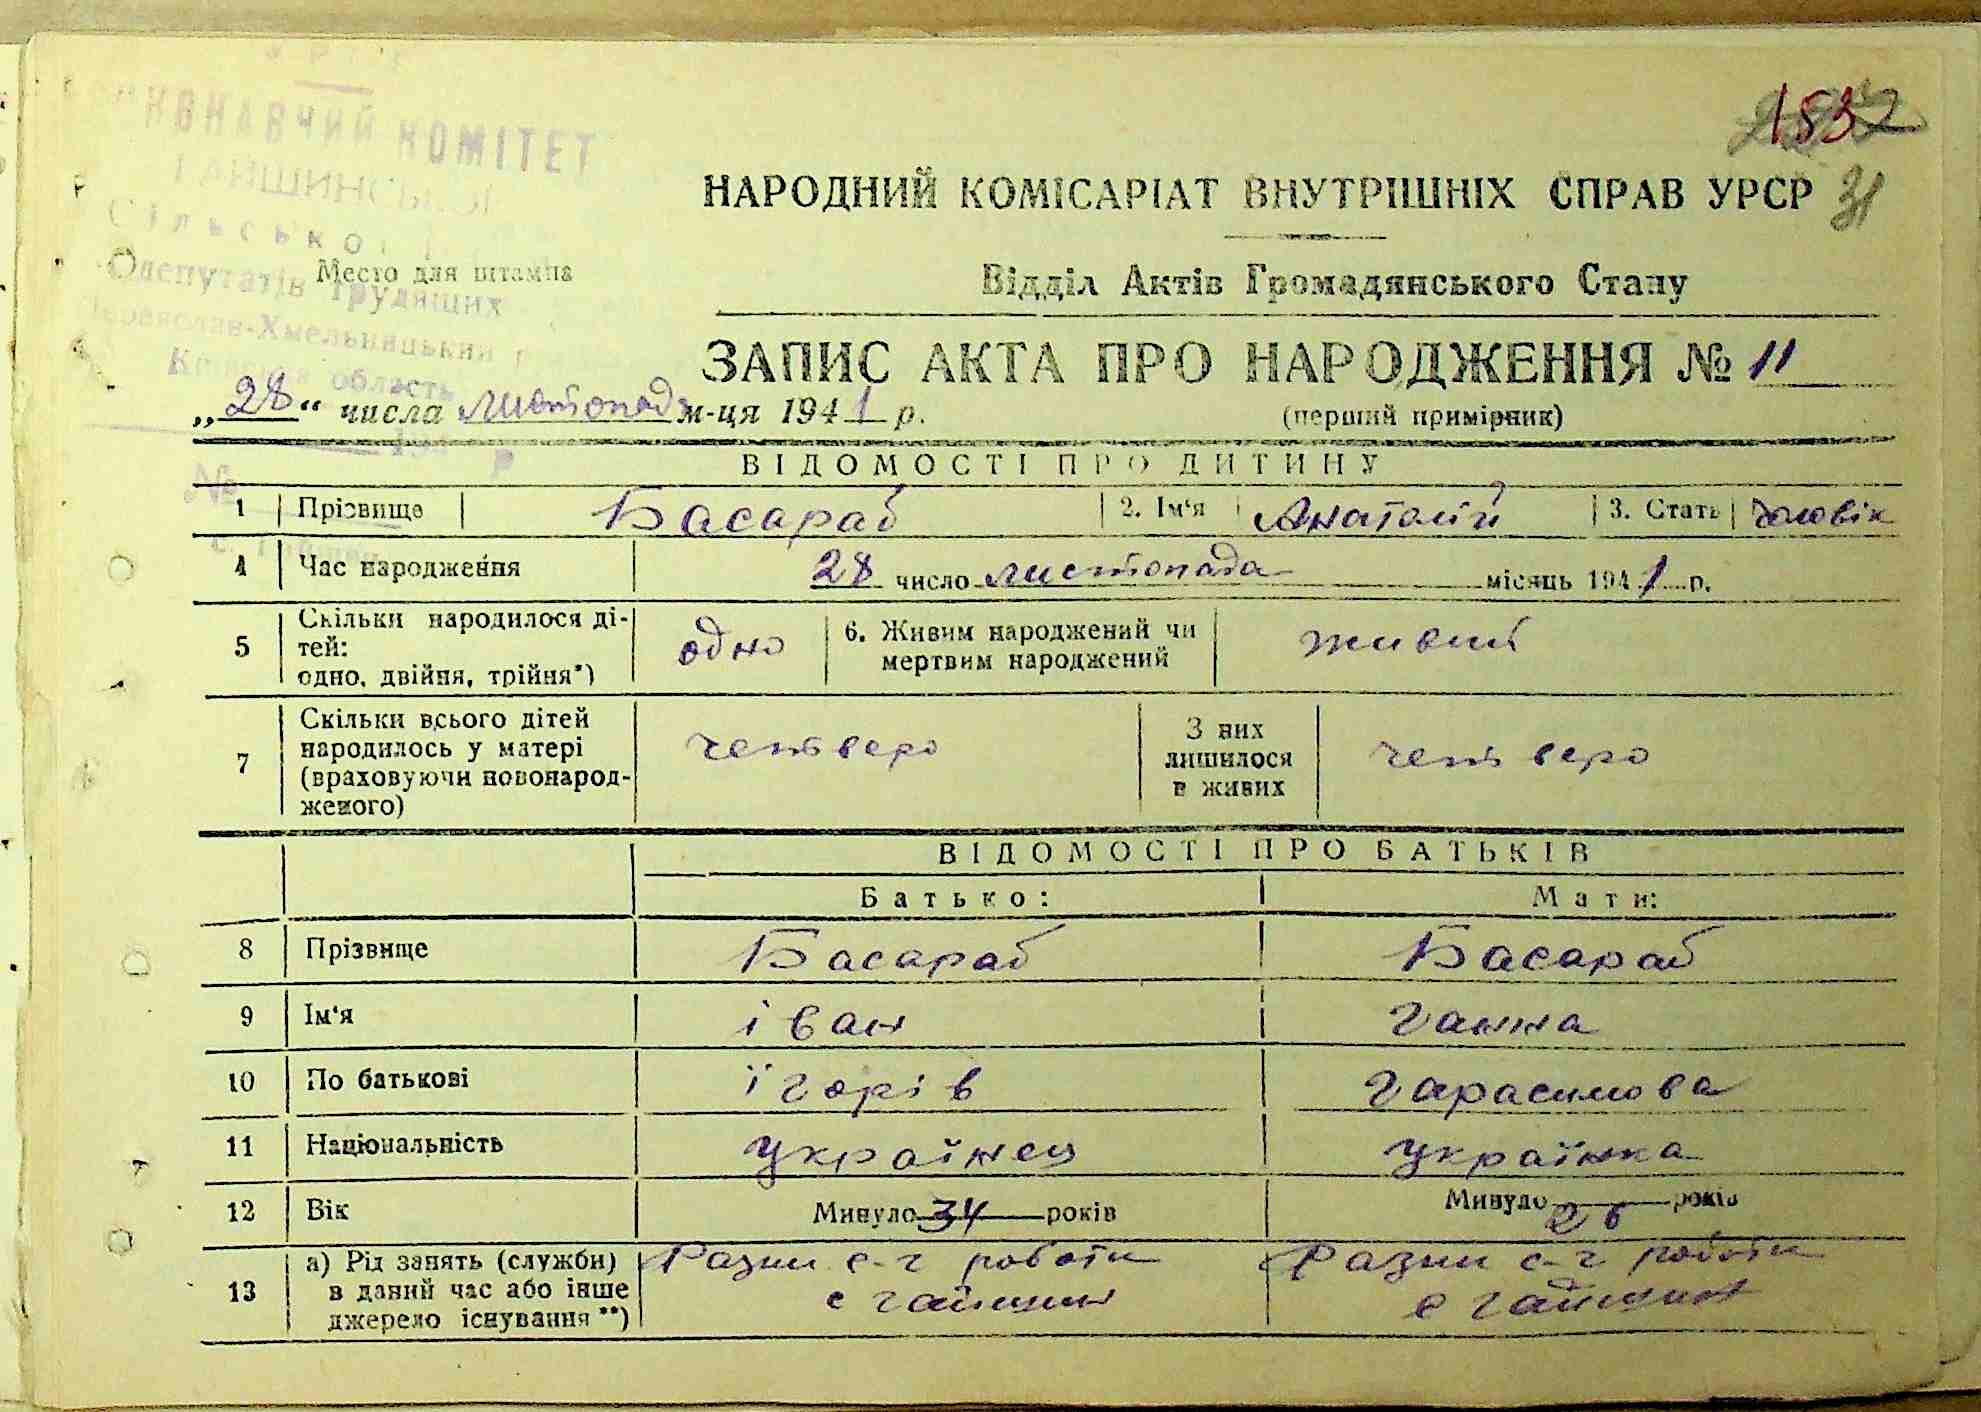 КОМІТЕТ
1532
НАРОДНИЙ КОМІСАРІАТ ВНУТРІШНІХ СПРАВ УРСР 31
Сільської
Место для штампа
депутатів Трудящих
Відділ Актів Громадянського Стану
Переяслав-Хмельницький
область
ЗАПИС АКТА ПРО НАРОДЖЕННЯ № 11
„28“ числа листопад м-ця 1941 р.
(перший примірник)
№
ВІДОМОСТІ ПРО ДИТИНУ
1 Прізвище Басараб 2. Ім'я Анатолій 3. Стать чоловік
4 Час народження 28 число листопада місяць 1941 р.
5 Скільки народилося ді-
тей:
одно, двійня, трійня*) одно 6. Живим народжений чи
мертвим народжений живий
7 Скільки всього дітей
народилось у матері
(враховуючи новонарод-
женого) четверо З них
лишилося
в живих четверо
ВІДОМОСТІ ПРО БАТЬКІВ
Батько: Мати:
8 Прізвище Басараб Басараб
9 Ім'я іван Ганна
10 По батькові їгорів Гарасимова
11 Національність українец українка
12 Вік Минуло 34 років Минуло 26 років
13 а) Рід занять (служби)
в даний час або інше
джерело існування**) Разни с-г роботи
с Гайшин Разни с-г роботи
с Гайшин